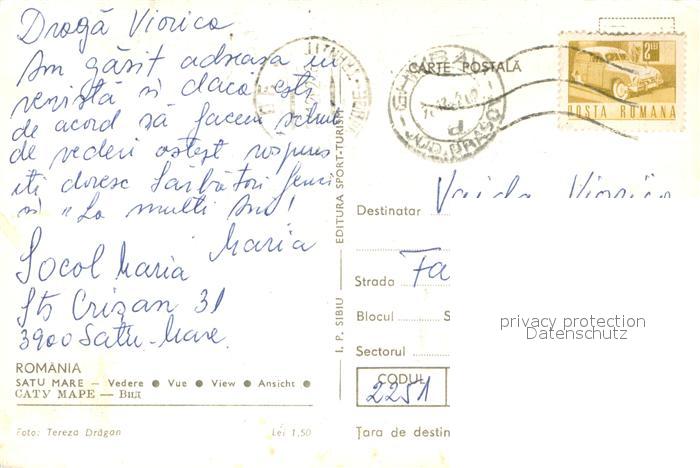 Dragă Viorica
Am găsit adresa în
revistă si dacă ești
de acord să facem schimb
de vederi astept răspuns
iti doresc Sărbători fericite
si "La multi Ani!
Maria
Socol Maria
Str Crizan 31
3900 Satu-Mare.
ROMÂNIA
SATU MARE — Vedere ● Vue ● View ● Ansicht ●
САТУ МАРЕ — Вид
Foto: Tereza Drăgan Lei 1,50
I. P. SIBIU EDITURA SPORT-TURISM
CARTE POȘTALĂ
2 LEI
POSTA ROMANA
Destinatar Vaida Viorica
Strada Fa
Blocul S
Sectorul
CODUL
2251
Țara de destin
privacy protection
Datenschutz